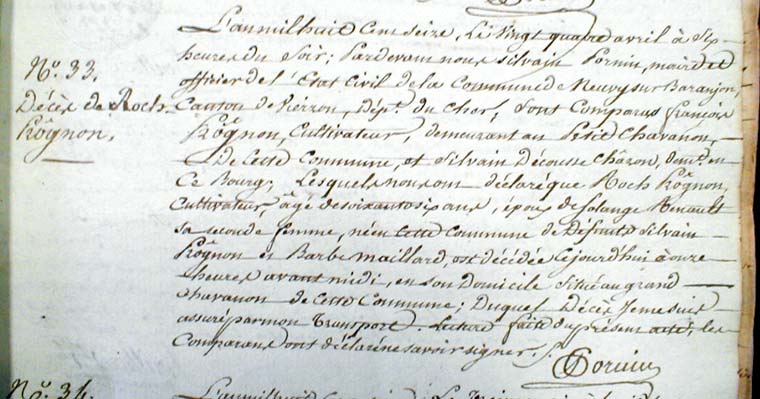 L'an mil huit cent seize, Le Vingt quatre avril à six
heures du Soir; Pardevant nous Silvain Pornin, maire et
officier de l'Etat Civil de la Commune de Neuvy sur Baranjon,
Canton de Vierzon, Dépt. du Cher, Sont Comparus françois
Rôgnon, Cultivateur, demeurant au Petit Chavanon,
de Cette Commune, et Silvain Décousse Châron, demt. en
Ce Bourg; Lesquels nous ont déclaré que Roch Rôgnon,
Cultivateur, âgé de soixante six ans, époux de Solange Renault
sa seconde femme, né en Cette Commune de Defunts Silvain
Rôgnon et Barbe Maillard, est décédé Cejourd'hui à onze
heures avant midi, en son Domicile Situé au grand
Chavanon de Cette Commune; Duquel Décès Je me suis
assuré par mon Transport. Lecture faite du présent acte, les
Comparans ont déclaré ne savoir signer. /.
Pornin
N.º 33.
Décès de Roch
Rôgnon.
N.º 34.
L'an mil huit